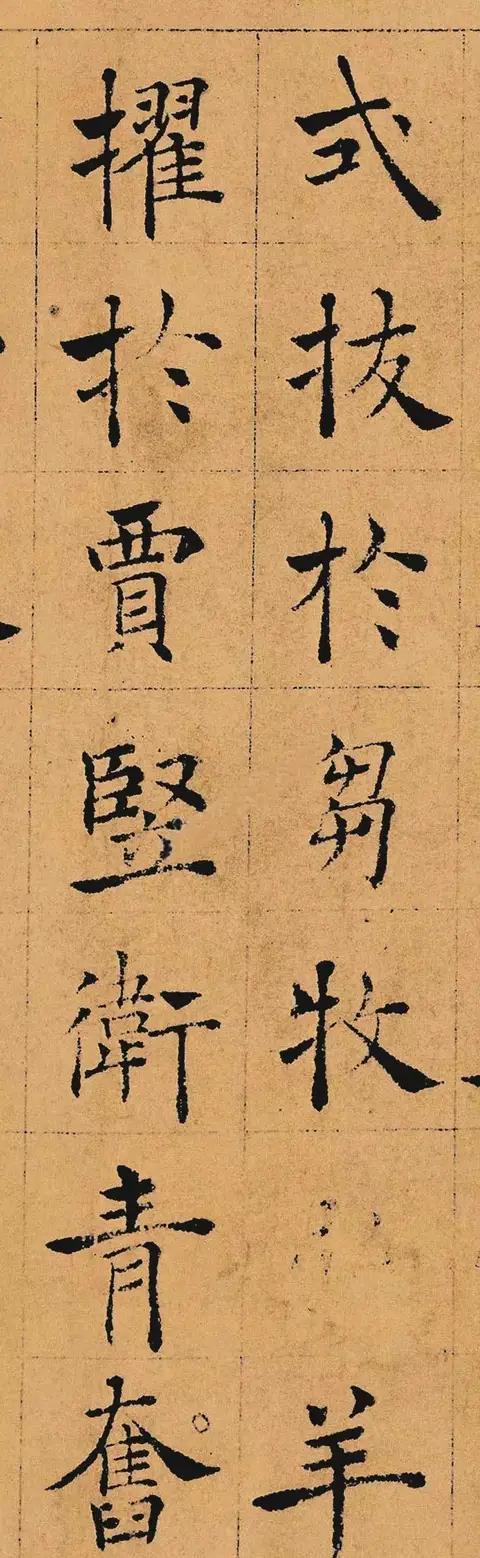 式拔於芻牧羊
擢於賈豎衛青奮